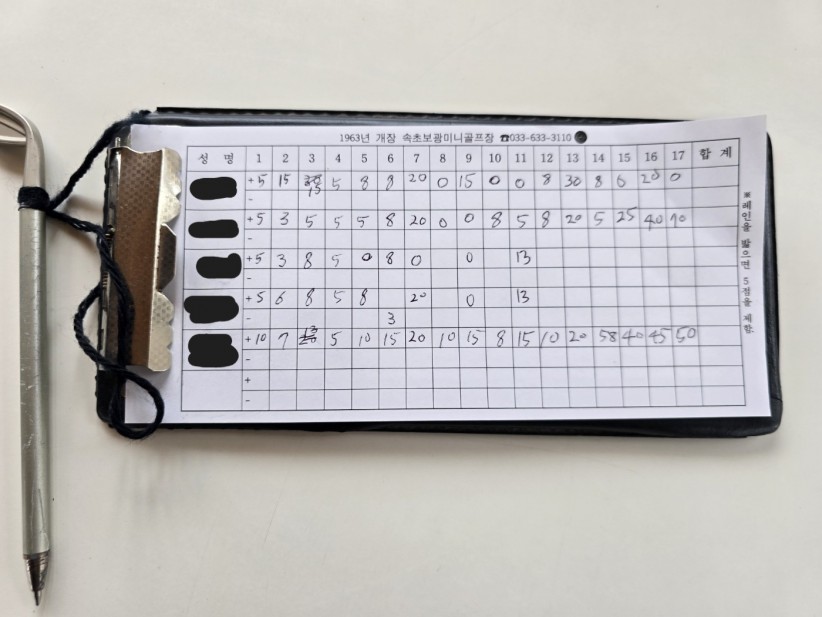 1963년 개장 속초보광미니골프장 ☎033-633-3110
성 명 1 2 3 4 5 6 7 8 9 10 11 12 13 14 15 16 17 합 계
+5 15 15 5 8 8 20 0 15 0 0 8 30 8 6 20 0
-
+5 3 5 5 5 8 20 0 0 8 5 8 20 5 25 40 70
-
+5 3 8 5 0 8 0 0 13
-
+5 6 8 5 8 20 0 13
- 3
+10 7 13 5 10 15 20 10 15 8 15 10 20 58 40 45 50
-
+
-
※레인을 밟으면 5점을 제함.